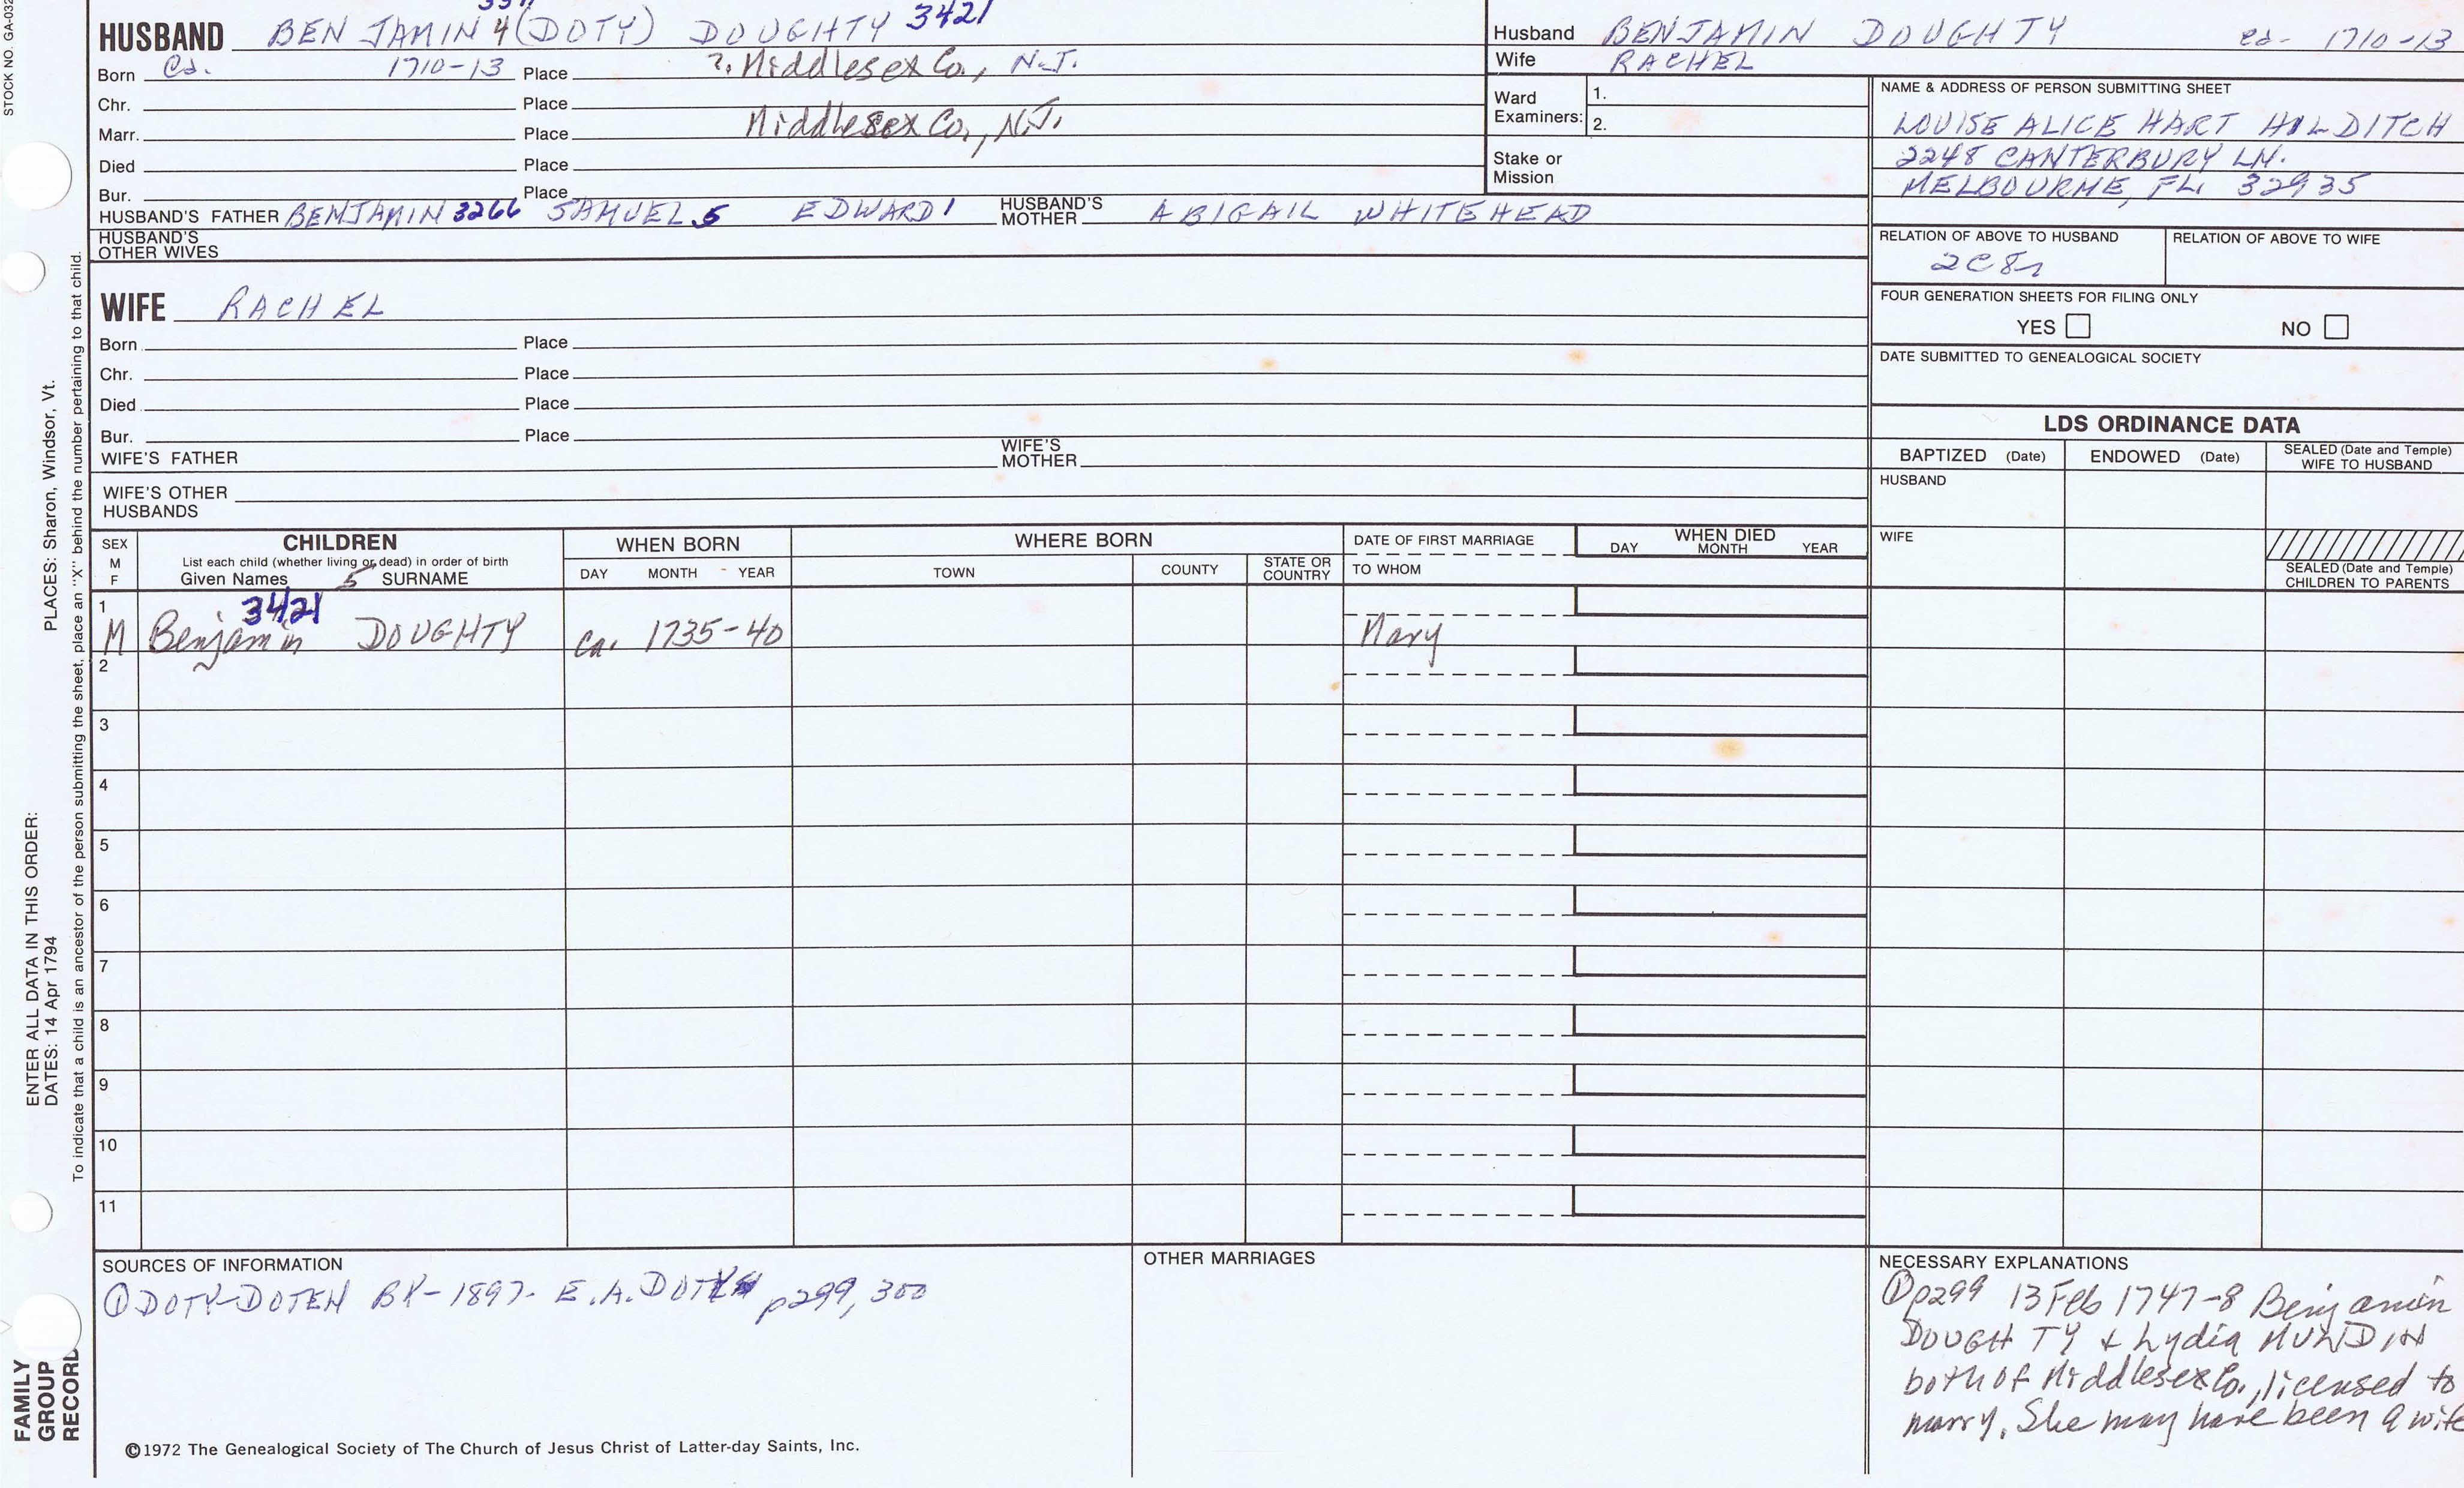 STOCK NO. GA-032
HUSBAND BENJAMIN 4 (DOTY) DOUGHTY 3421
Born Ca. 1710-13 Place ?. Middlesex Co., N.J.
Chr. Place
Marr. Place Middlesex Co., N.J.
Died Place
Bur. Place
HUSBAND'S FATHER BENJAMIN 3266 SAMUEL 5 EDWARD 1 HUSBAND'S MOTHER ABIGAIL WHITEHEAD
HUSBAND'S OTHER WIVES
WIFE RACHEL
Born Place
Chr. Place
Died Place
Bur. Place
WIFE'S FATHER WIFE'S MOTHER
WIFE'S OTHER HUSBANDS
Husband BENJAMIN DOUGHTY ca- 1710-13
Wife RACHEL
Ward Examiners: 1.
2.
Stake or Mission
NAME & ADDRESS OF PERSON SUBMITTING SHEET
LOUISE ALICE HART HILDITCH
2248 CANTERBURY LN.
MELBOURNE, FL. 32935
RELATION OF ABOVE TO HUSBAND RELATION OF ABOVE TO WIFE
2C8r
FOUR GENERATION SHEETS FOR FILING ONLY
YES NO
DATE SUBMITTED TO GENEALOGICAL SOCIETY
LDS ORDINANCE DATA
BAPTIZED (Date) ENDOWED (Date) SEALED (Date and Temple) WIFE TO HUSBAND
HUSBAND
WIFE
SEALED (Date and Temple) CHILDREN TO PARENTS
SEX M F
CHILDREN
List each child (whether living or dead) in order of birth
Given Names 5 SURNAME
WHEN BORN
DAY MONTH YEAR
WHERE BORN
TOWN COUNTY STATE OR COUNTRY
DATE OF FIRST MARRIAGE
TO WHOM
WHEN DIED
DAY MONTH YEAR
1 3421
M Benjamin DOUGHTY ca. 1735-40 Mary
2
3
4
5
6
7
8
9
10
11
SOURCES OF INFORMATION
① DOTY-DOTEN BK-1897- E.A. DOTY p299, 300
OTHER MARRIAGES
NECESSARY EXPLANATIONS
① p299 13 Feb 1747-8 Benjamin
DOUGHTY & Lydia MUNDIN
both of Middlesex Co., licensed to
marry. She may have been a wife
©1972 The Genealogical Society of The Church of Jesus Christ of Latter-day Saints, Inc.
PLACES: Sharon, Windsor, Vt.
ENTER ALL DATA IN THIS ORDER:
DATES: 14 Apr 1794
To indicate that a child is an ancestor of the person submitting the sheet, place an "X" behind the number pertaining to that child.
FAMILY
GROUP
RECORD